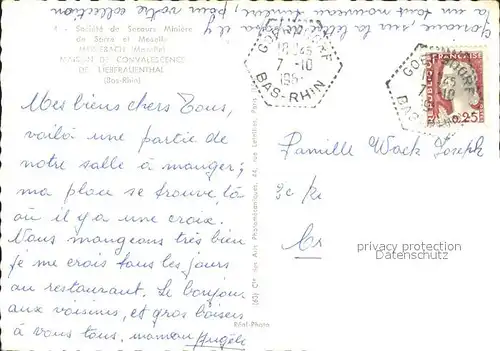 Jorraine, sur la lettre il y
a un tout nouveau timbre, pour votre collection
1 - Société de Secours Minière
de Sarre et Moselle
MERLEBACH (Moselle)
MAISON DE CONVALESCENCE
DE LIEBFRAUENTHAL
(Bas-Rhin)
GOERSDORF
18 H45
7 -10
196
BAS-RHIN
GOERSDORF
45
7 -10
BAS-RHIN
FRANÇAISE
0,25
Mes biens chers Tous,
voilà une partie de
notre salle à manger;
ma place se trouve là
où il y a une croix.
Nous mangeons très bien
je me crois tous les jours
au restaurant. Le bonjour
aux voisins, et gros baisers
à vous tous, maman Angèle
(63) Cie des Arts Photomécaniques
Réal-Photo
Famille Wack Joseph
privacy protection
Datenschutz